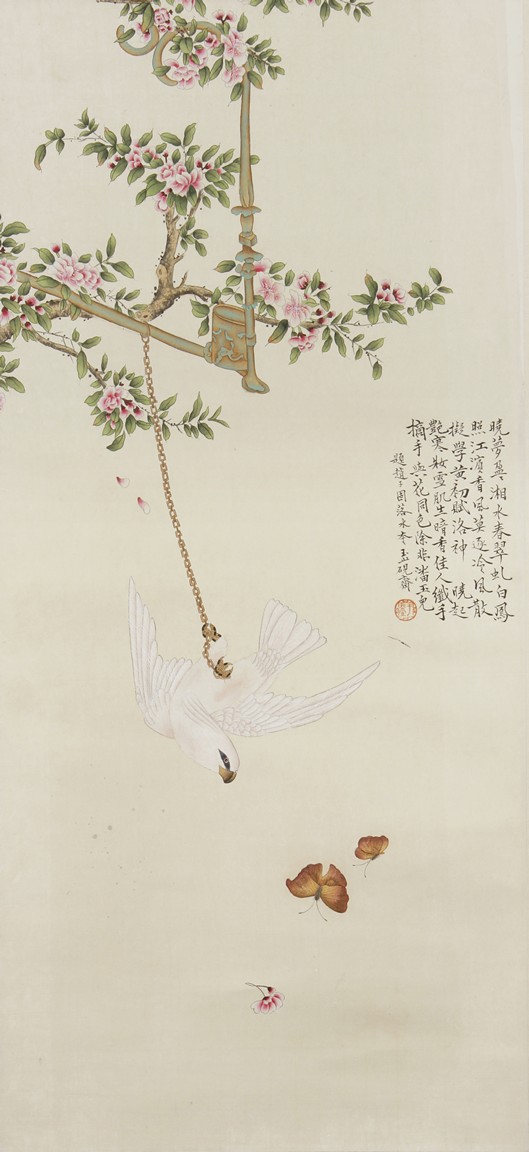 曉夢興湘水春翠虬白鳳
照江濱香風莫逐冷風散
擬學黃初賦洛神　曉起
艷寒妝雪肌生暗香佳人纖手
摘手與花同色除非潘玉兒
題趙子固落水本玉硯齋